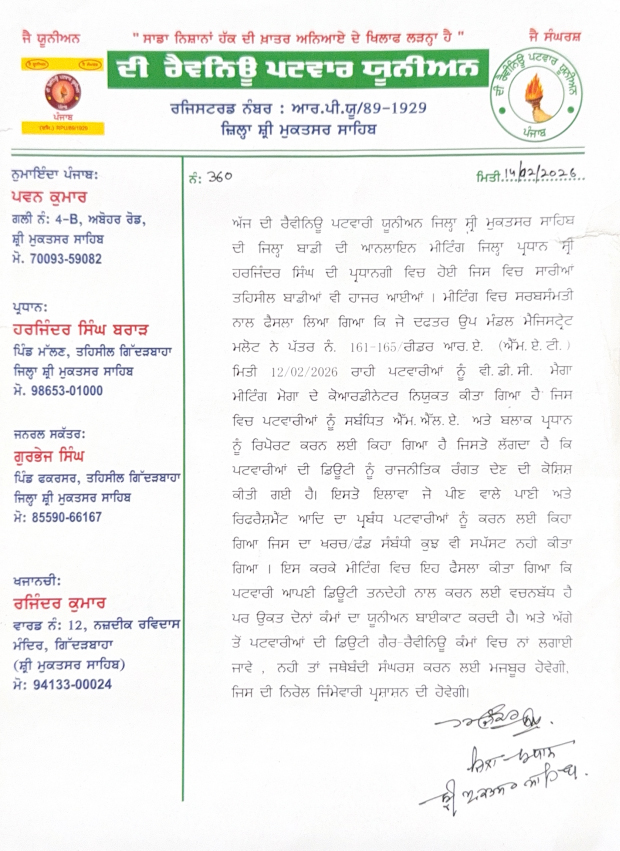 ਜੈ ਯੂਨੀਅਨ
" ਸਾਡਾ ਨਿਸ਼ਾਨਾਂ ਹੱਕ ਦੀ ਖ਼ਾਤਰ ਅਨਿਆਏ ਦੇ ਖਿਲਾਫ ਲੜਨਾ ਹੈ "
ਜੈ ਸੰਘਰਸ਼
ਦੀ ਰੈਵਨਿਊ ਪਟਵਾਰ ਯੂਨੀਅਨ
ਪੰਜਾਬ
ਦੀ ਰੈਵੀਨਿਊ ਪਟਵਾਰ ਯੂਨੀਅਨ
ਪੰਜਾਬ
ਰਜਿਸਟਰਡ ਨੰਬਰ : ਆਰ.ਪੀ.ਯੂ/89-1929
ਜ਼ਿਲ੍ਹਾ ਸ਼੍ਰੀ ਮੁਕਤਸਰ ਸਾਹਿਬ
ਨੁਮਾਇੰਦਾ ਪੰਜਾਬ:
ਪਵਨ ਕੁਮਾਰ
ਗਲੀ ਨੰ: 4-B, ਅਬੋਹਰ ਰੋਡ,
ਸ਼੍ਰੀ ਮੁਕਤਸਰ ਸਾਹਿਬ
ਮੋ. 70093-59082
ਪ੍ਰਧਾਨ:
ਹਰਜਿੰਦਰ ਸਿੰਘ ਬਰਾੜ
ਪਿੰਡ ਮੱਲਣ, ਤਹਿਸੀਲ ਗਿੱਦੜਬਾਹਾ
ਜਿਲ੍ਹਾ ਸ਼੍ਰੀ ਮੁਕਤਸਰ ਸਾਹਿਬ
ਮੋ. 98653-01000
ਜਨਰਲ ਸਕੱਤਰ:
ਗੁਰਭੇਜ ਸਿੰਘ
ਪਿੰਡ ਫਕਰਸਰ, ਤਹਿਸੀਲ ਗਿੱਦੜਬਾਹਾ
ਜਿਲ੍ਹਾ ਸ਼੍ਰੀ ਮੁਕਤਸਰ ਸਾਹਿਬ
ਮੋ: 85590-66167
ਖਜਾਨਚੀ:
ਰਜਿੰਦਰ ਕੁਮਾਰ
ਵਾਰਡ ਨੰ: 12, ਨਜ਼ਦੀਕ ਰਵਿਦਾਸ
ਮੰਦਿਰ, ਗਿੱਦੜਬਾਹਾ
(ਸ਼੍ਰੀ ਮੁਕਤਸਰ ਸਾਹਿਬ)
ਮੋ: 94133-00024
ਨੰ: 360
ਮਿਤੀ 14/02/2026
ਅੱਜ ਦੀ ਰੈਵੀਨਿਊ ਪਟਵਾਰੀ ਯੂਨੀਅਨ ਜਿਲ੍ਹਾ ਸ੍ਰੀ ਮੁਕਤਸਰ ਸਾਹਿਬ
ਦੀ ਜਿਲ੍ਹਾ ਬਾਡੀ ਦੀ ਆਨਲਾਇਨ ਮੀਟਿੰਗ ਜਿਲ੍ਹਾ ਪ੍ਰਧਾਨ ਸ੍ਰੀ
ਹਰਜਿੰਦਰ ਸਿੰਘ ਦੀ ਪ੍ਰਧਾਨਗੀ ਵਿਚ ਹੋਈ ਜਿਸ ਵਿਚ ਸਾਰੀਆਂ
ਤਹਿਸੀਲ ਬਾਡੀਆਂ ਵੀ ਹਾਜਰ ਆਈਆਂ । ਮੀਟਿੰਗ ਵਿਚ ਸਰਬਸੰਮਤੀ
ਨਾਲ ਫੈਸਲਾ ਲਿਆ ਗਿਆ ਕਿ ਜੋ ਦਫਤਰ ਉਪ ਮੰਡਲ ਮੈਜਿਸਟ੍ਰੇਟ
ਮਲੋਟ ਨੇ ਪੱਤਰ ਨੰ. 161-165/ਰੀਡਰ ਆਰ.ਏ. (ਐੱਮ.ਏ.ਟੀ.)
ਮਿਤੀ 12/02/2026 ਰਾਹੀ ਪਟਵਾਰੀਆਂ ਨੂੰ ਵੀ.ਡੀ.ਸੀ. ਮੇਗਾ
ਮੀਟਿੰਗ ਮੋਗਾ ਦੇ ਕੋਆਰਡੀਨੇਟਰ ਨਿਯੁਕਤ ਕੀਤਾ ਗਿਆ ਹੈ ਜਿਸ
ਵਿਚ ਪਟਵਾਰੀਆਂ ਨੂੰ ਸਬੰਧਿਤ ਐੱਮ.ਐੱਲ.ਏ. ਅਤੇ ਬਲਾਕ ਪ੍ਰਧਾਨ
ਨੂੰ ਰਿਪੋਰਟ ਕਰਨ ਲਈ ਕਿਹਾ ਗਿਆ ਹੈ ਜਿਸਤੋ ਲੱਗਦਾ ਹੈ ਕਿ
ਪਟਵਾਰੀਆਂ ਦੀ ਡਿਊਟੀ ਨੂੰ ਰਾਜਨੀਤਿਕ ਰੰਗਤ ਦੇਣ ਦੀ ਕੋਸ਼ਿਸ਼
ਕੀਤੀ ਗਈ ਹੈ। ਇਸਤੋ ਇਲਾਵਾ ਜੋ ਪੀਣ ਵਾਲੇ ਪਾਣੀ ਅਤੇ
ਰਿਫਰੈਸ਼ਮੈਂਟ ਆਦਿ ਦਾ ਪ੍ਰਬੰਧ ਪਟਵਾਰੀਆਂ ਨੂੰ ਕਰਨ ਲਈ ਕਿਹਾ
ਗਿਆ ਜਿਸ ਦਾ ਖਰਚ/ਫੰਡ ਸੰਬੰਧੀ ਕੁਝ ਵੀ ਸਪੱਸਟ ਨਹੀ ਕੀਤਾ
ਗਿਆ । ਇਸ ਕਰਕੇ ਮੀਟਿੰਗ ਵਿਚ ਇਹ ਫੈਸਲਾ ਕੀਤਾ ਗਿਆ ਕਿ
ਪਟਵਾਰੀ ਆਪਣੀ ਡਿਊਟੀ ਤਨਦੇਹੀ ਨਾਲ ਕਰਨ ਲਈ ਵਚਨਬੱਧ ਹੈ
ਪਰ ਉਕਤ ਦੋਨਾਂ ਕੰਮਾਂ ਦਾ ਯੂਨੀਅਨ ਬਾਈਕਾਟ ਕਰਦੀ ਹੈ। ਅਤੇ ਅੱਗੇ
ਤੋਂ ਪਟਵਾਰੀਆਂ ਦੀ ਡਿਊਟੀ ਗੈਰ-ਰੈਵੀਨਿਊ ਕੰਮਾਂ ਵਿਚ ਨਾਂ ਲਗਾਈ
ਜਾਵੇ , ਨਹੀ ਤਾਂ ਜਥੇਬੰਦੀ ਸੰਘਰਸ਼ ਕਰਨ ਲਈ ਮਜਬੂਰ ਹੋਵੇਗੀ,
ਜਿਸ ਦੀ ਨਿਰੋਲ ਜਿੰਮੇਵਾਰੀ ਪ੍ਰਸ਼ਾਸਨ ਦੀ ਹੋਵੇਗੀ।
ਜਿਲਾ ਪ੍ਰਧਾਨ
ਸ੍ਰੀ ਮੁਕਤਸਰ ਸਾਹਿਬ.